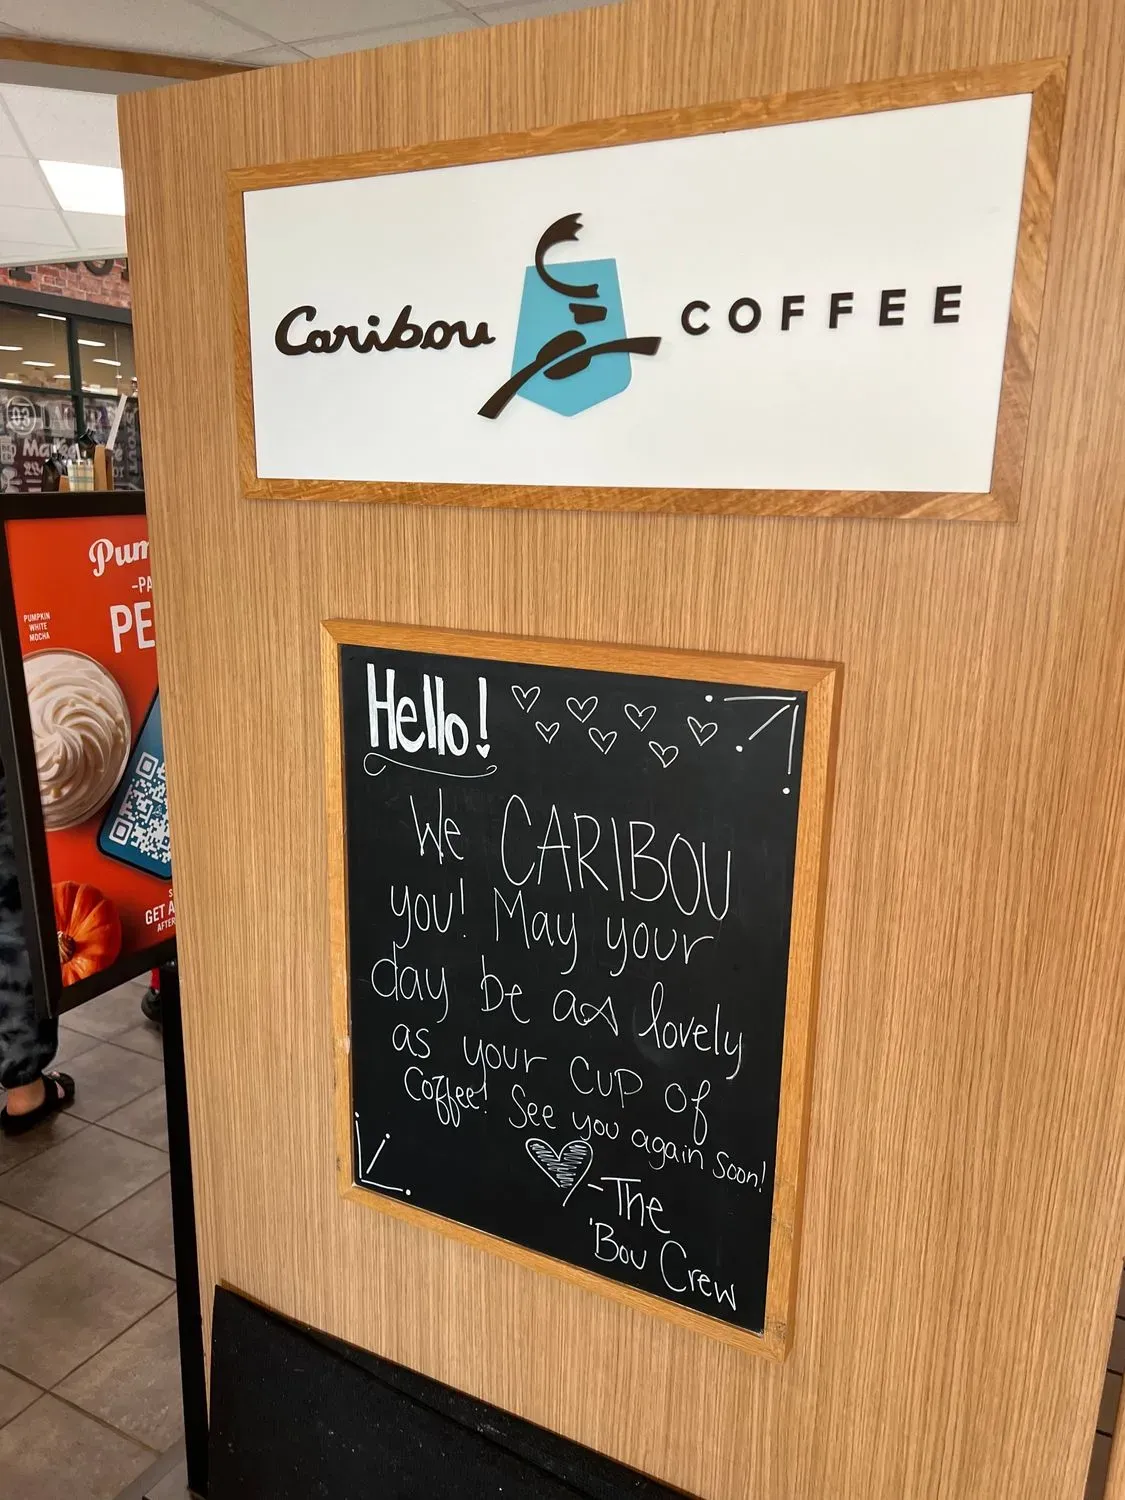 Caribou COFFEE
PUMPKIN
WHITE
MOCHA
GET
AFTER
Hello!
We CARIBOU
you! May your
day be as lovely
as your cup of
Coffee! See you again soon!
-The
'Bou Crew